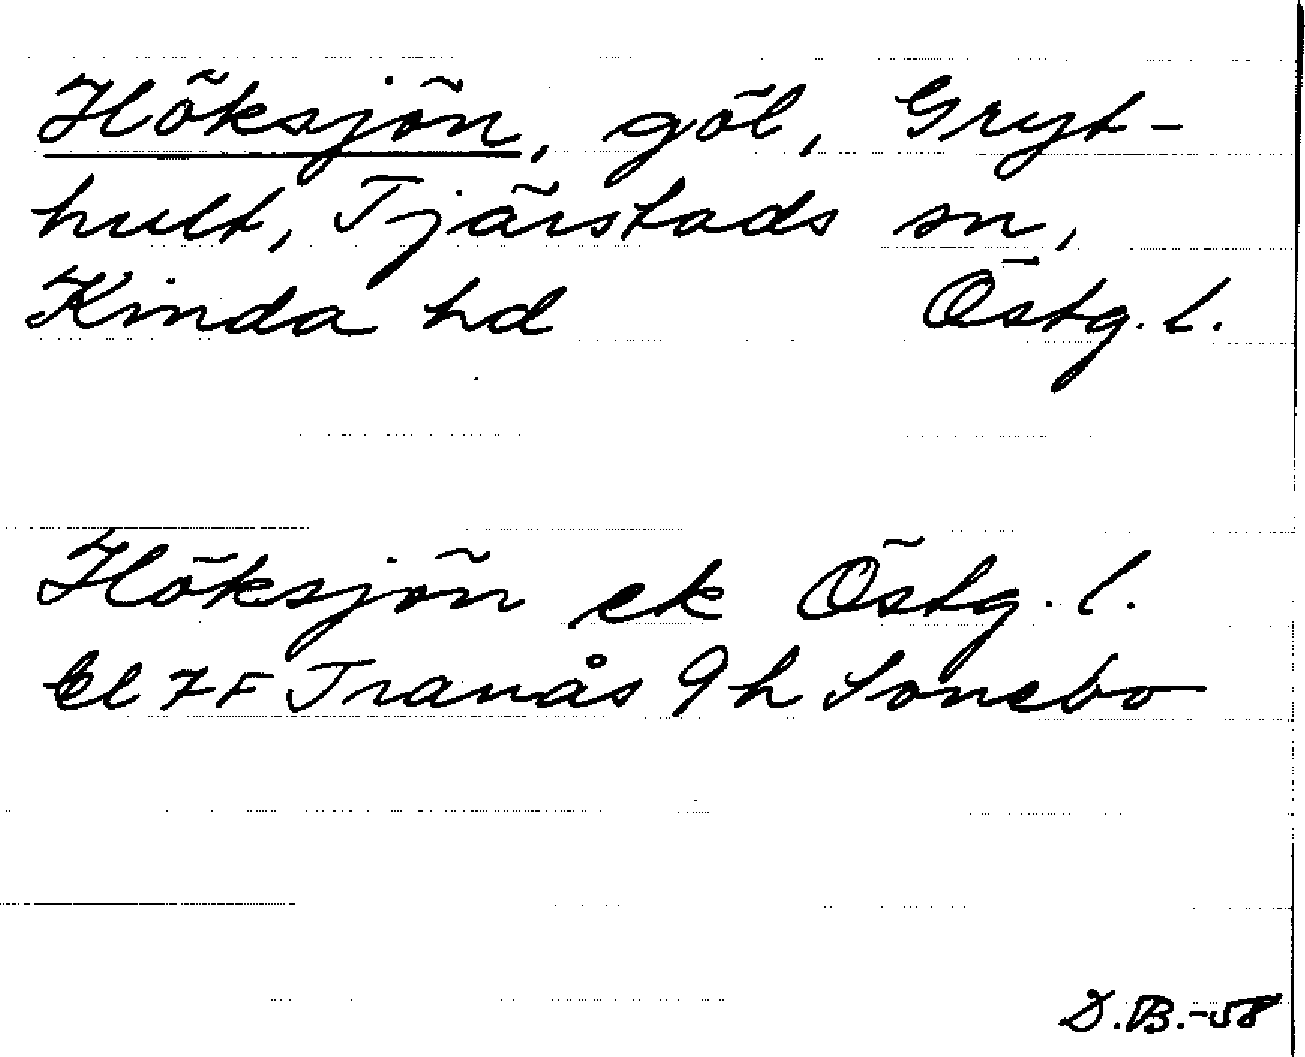 Höksjön, göl, Gryt-
hult, Tjärstads sn,
Kinda hd Östg. l.
Höksjön ek Östg. l.
Bl 7F Tranås 9h Sonebo
D.B.-58